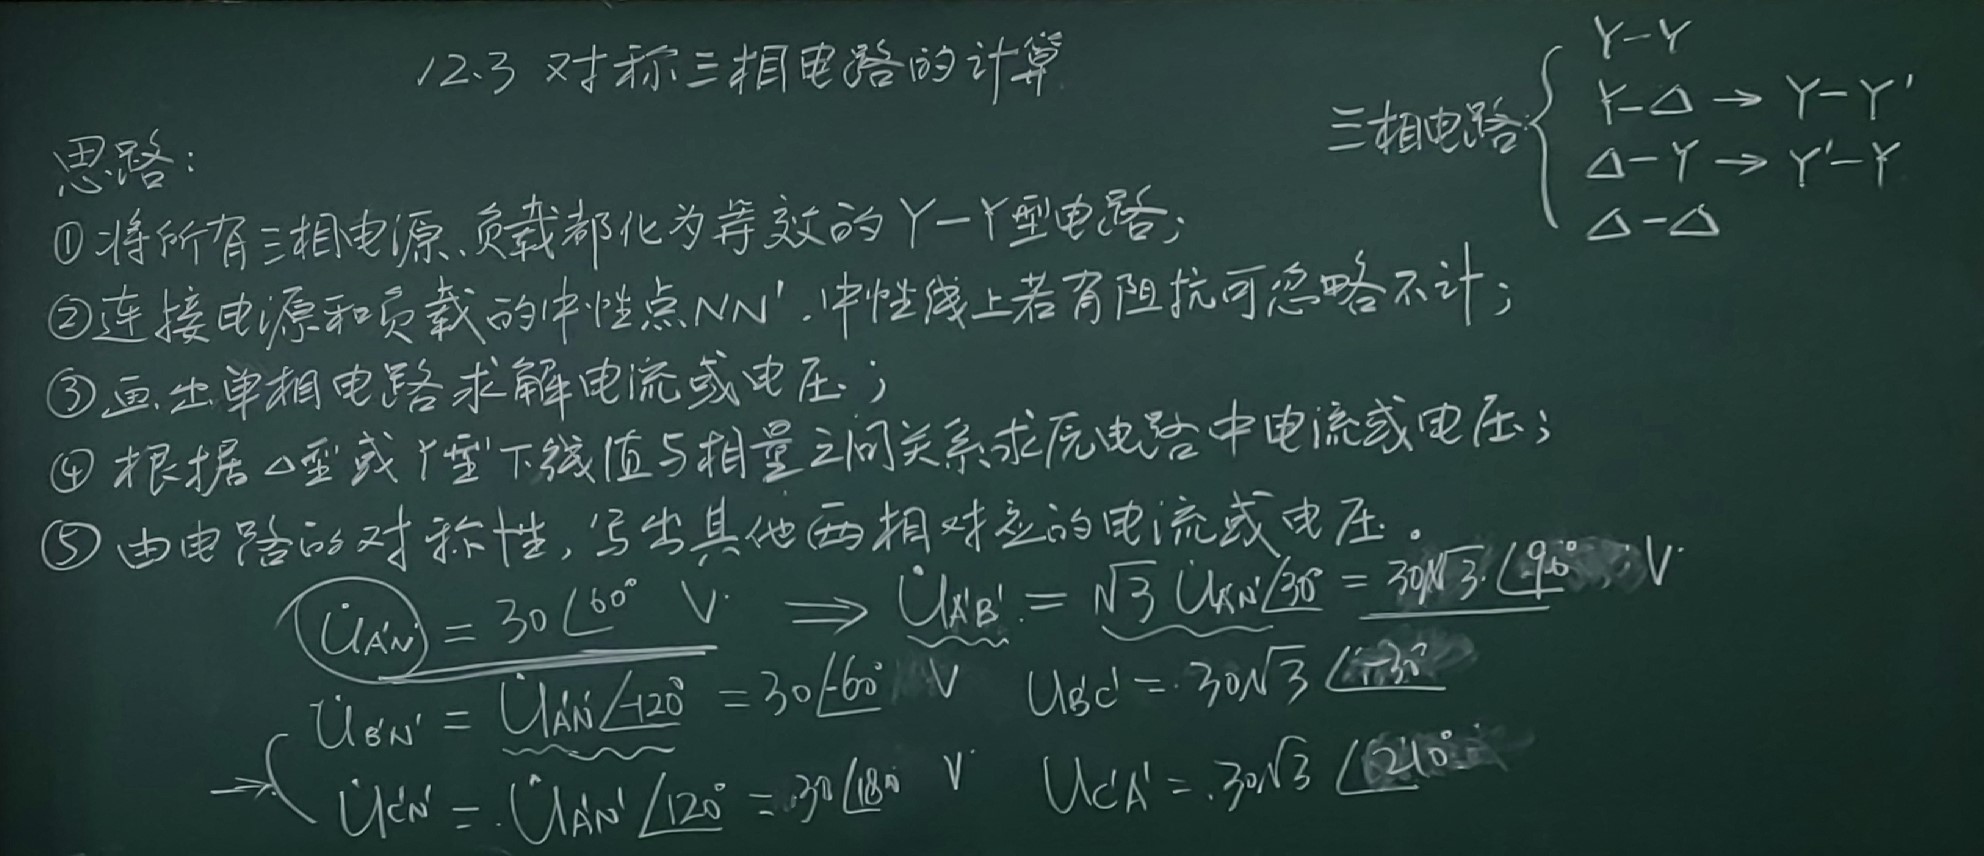 12.3 对称三相电路的计算
三相电路:
Y-Y
Y-△→Y-Y'
△-Y→Y'-Y
△-△
思路:
①将所有三相电源、负载都化为等效的Y-Y型电路;
②连接电源和负载的中性点NN'.中性线上若有阻抗可忽略不计;
③画出单相电路求解电流或电压;
④根据△型或Y型下线值与相量之间关系求原电路中电流或电压;
⑤由电路的对称性,写出其他两相对应的电流或电压.
U̇A'N' = 30∠60° V ⟹ U̇A'B' = √3 U̇A'N'∠30° = 30√3∠90° V
U̇B'N' = U̇A'N'∠-120° = 30∠-60° V UB'C' = 30√3∠-30°
→ U̇C'N' = U̇A'N'∠120° = 30∠180° V UC'A' = 30√3∠210°